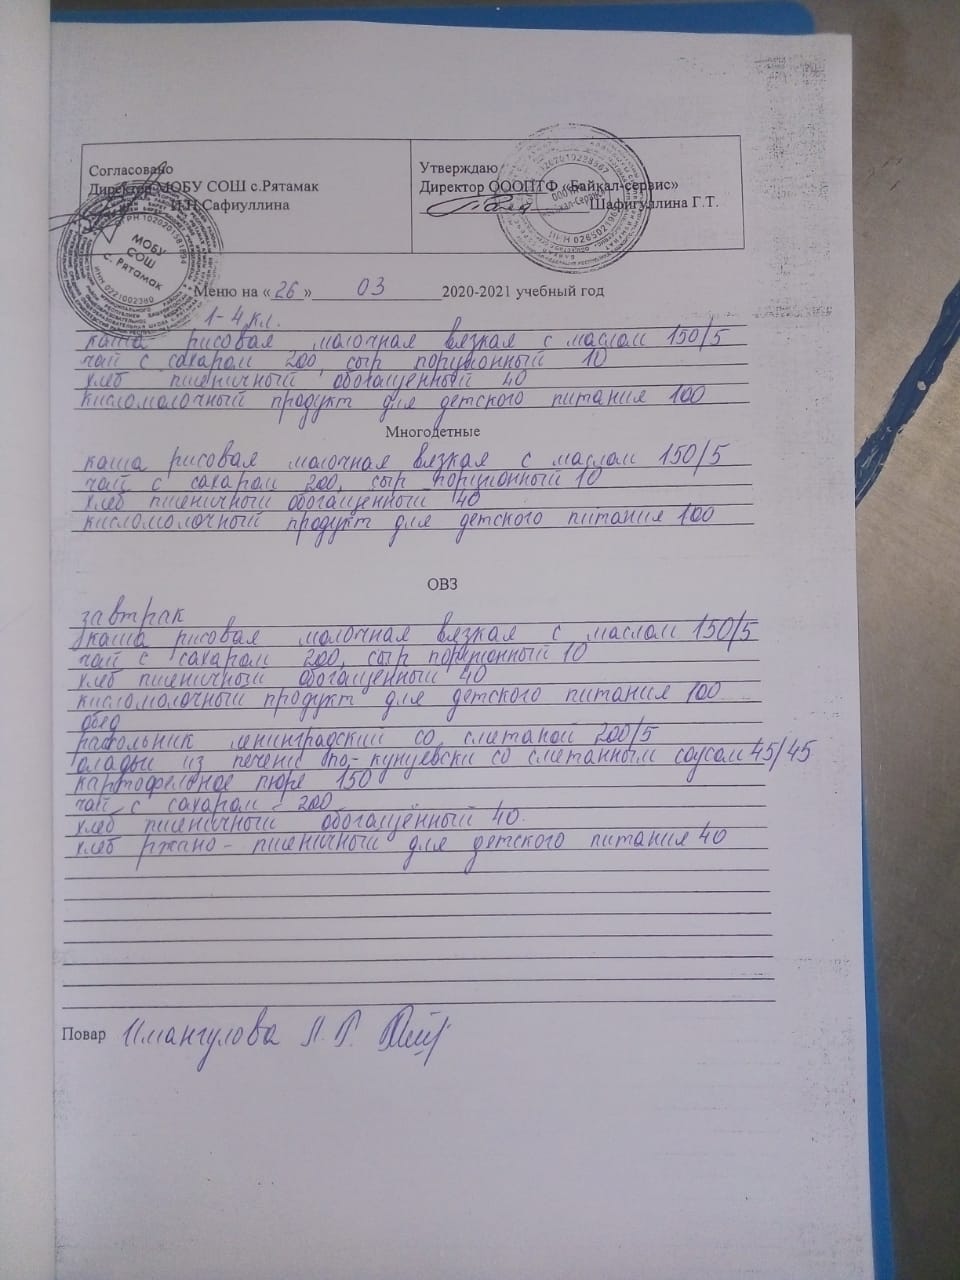 Согласовано
Директор МОБУ СОШ с.Рятамак
И.Н.Сафиуллина
Утверждаю
Директор ОООПТФ «Байкал-сервис»
Шафигуллина Г.Т.
МОБУ
СОШ
с. Рятамак
Меню на «26» 03 2020-2021 учебный год
1-4 кл.
каша рисовая молочная вязкая с маслом 150/5
чай с сахаром 200, сыр порционный 10
хлеб пшеничный обогащенный 40
кисломолочный продукт для детского питания 100
Многодетные
каша рисовая молочная вязкая с маслом 150/5
чай с сахаром 200, сыр порционный 10
хлеб пшеничный обогащенный 40
кисломолочный продукт для детского питания 100
ОВЗ
завтрак
каша рисовая молочная вязкая с маслом 150/5
чай с сахаром 200, сыр порционный 10
хлеб пшеничный обогащенный 40
кисломолочный продукт для детского питания 100
обед
рассольник ленинградский со сметаной 200/5
оладьи из печени по-кунцевски со сметанным соусом 45/45
картофельное пюре 150
чай с сахаром - 200
хлеб пшеничный обогащённый 40.
хлеб ржано-пшеничный для детского питания 40
Повар Имангулова Л. Р.